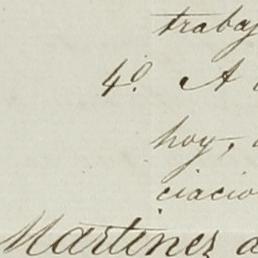 trabaj
4º. A
hoy,
ciacio
Martinez a